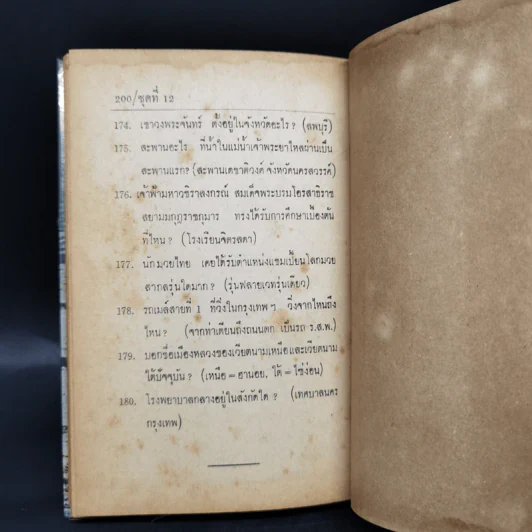 200/ชุดที่ 12
174. เขาวงพระจันทร์ ตั้งอยู่ในจังหวัดอะไร? (ลพบุรี)
175. สะพานอะไร ที่น้ำในแม่น้ำเจ้าพระยาไหลผ่านเป็น
สะพานแรก? (สะพานเดชาติวงศ์ จังหวัดนครสวรรค์)
176. เจ้าฟ้ามหาวชิราลงกรณ์ สมเด็จพระบรมโอรสาธิราช
สยามมกุฎราชกุมาร ทรงได้รับการศึกษาเบื้องต้น
ที่ไหน? (โรงเรียนจิตรลดา)
177. นักมวยไทย เคยได้รับตำแหน่งแชมเปี้ยนโลกมวย
สากลรุ่นใดมาก? (รุ่นฟลายเวทรุ่นเดียว)
178. รถเมล์สายที่ 1 ที่วิ่งในกรุงเทพฯ วิ่งจากไหนถึง
ไหน? (จากท่าเตียนถึงถนนตก เป็นรถ ร.ส.พ.)
179. บอกชื่อเมืองหลวงของเวียตนามเหนือและเวียตนาม
ใต้ปัจจุบัน? (เหนือ = ฮานอย, ใต้ = ไซ่ง่อน)
180. โรงพยาบาลกลางอยู่ในสังกัดใด? (เทศบาลนคร
กรุงเทพ)